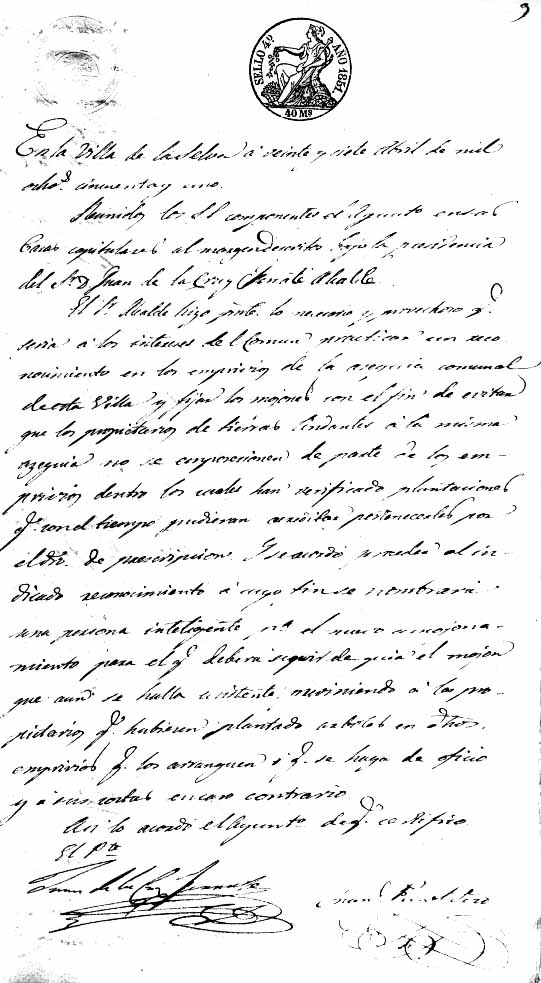 9
SELLO 4º AÑO 1851.
40 Ms
En la Villa de la Selva á veinte y siete Abril de mil
ochos. cincuenta y uno.
Reunidos los SS componentes el Ayunto en sus
Casas capitulares al margen descrito bajo la presidencia
del Sr. D. Juan de la Cruz Alcalde.
El Sr. Alcalde hizo pnte. lo necesario y provechoso q.
seria á los intereses del Comun practicar un reco-
nocimiento en los emprivios de la asequia comunal
de esta Villa y fijar los mojones con el fin de evitar
que los propietarios de tierras lindantes á la misma
azequia no se de parte de los em-
privios dentro los cuales han verificado plantaciones
q. con el tiempo pudieran acreditar pertenecerles por
el dro. de prescripcion. Y se acordó proceder al in-
dicado reconocimiento á cuyo fin se nombrará
una persona inteligente pa. el nuevo amojona-
miento para el q. deberá seguir de guia el mojon
que aun se halla existente previniendo á los pro-
pietarios q. hubiesen plantado arboles en dhos.
emprivios q. los arranquen ó q. se haga de oficio
y á sus costas en caso contrario
Asi lo acordó el Ayunto. de q. certifico.
El Pte
Juan de la Cruz